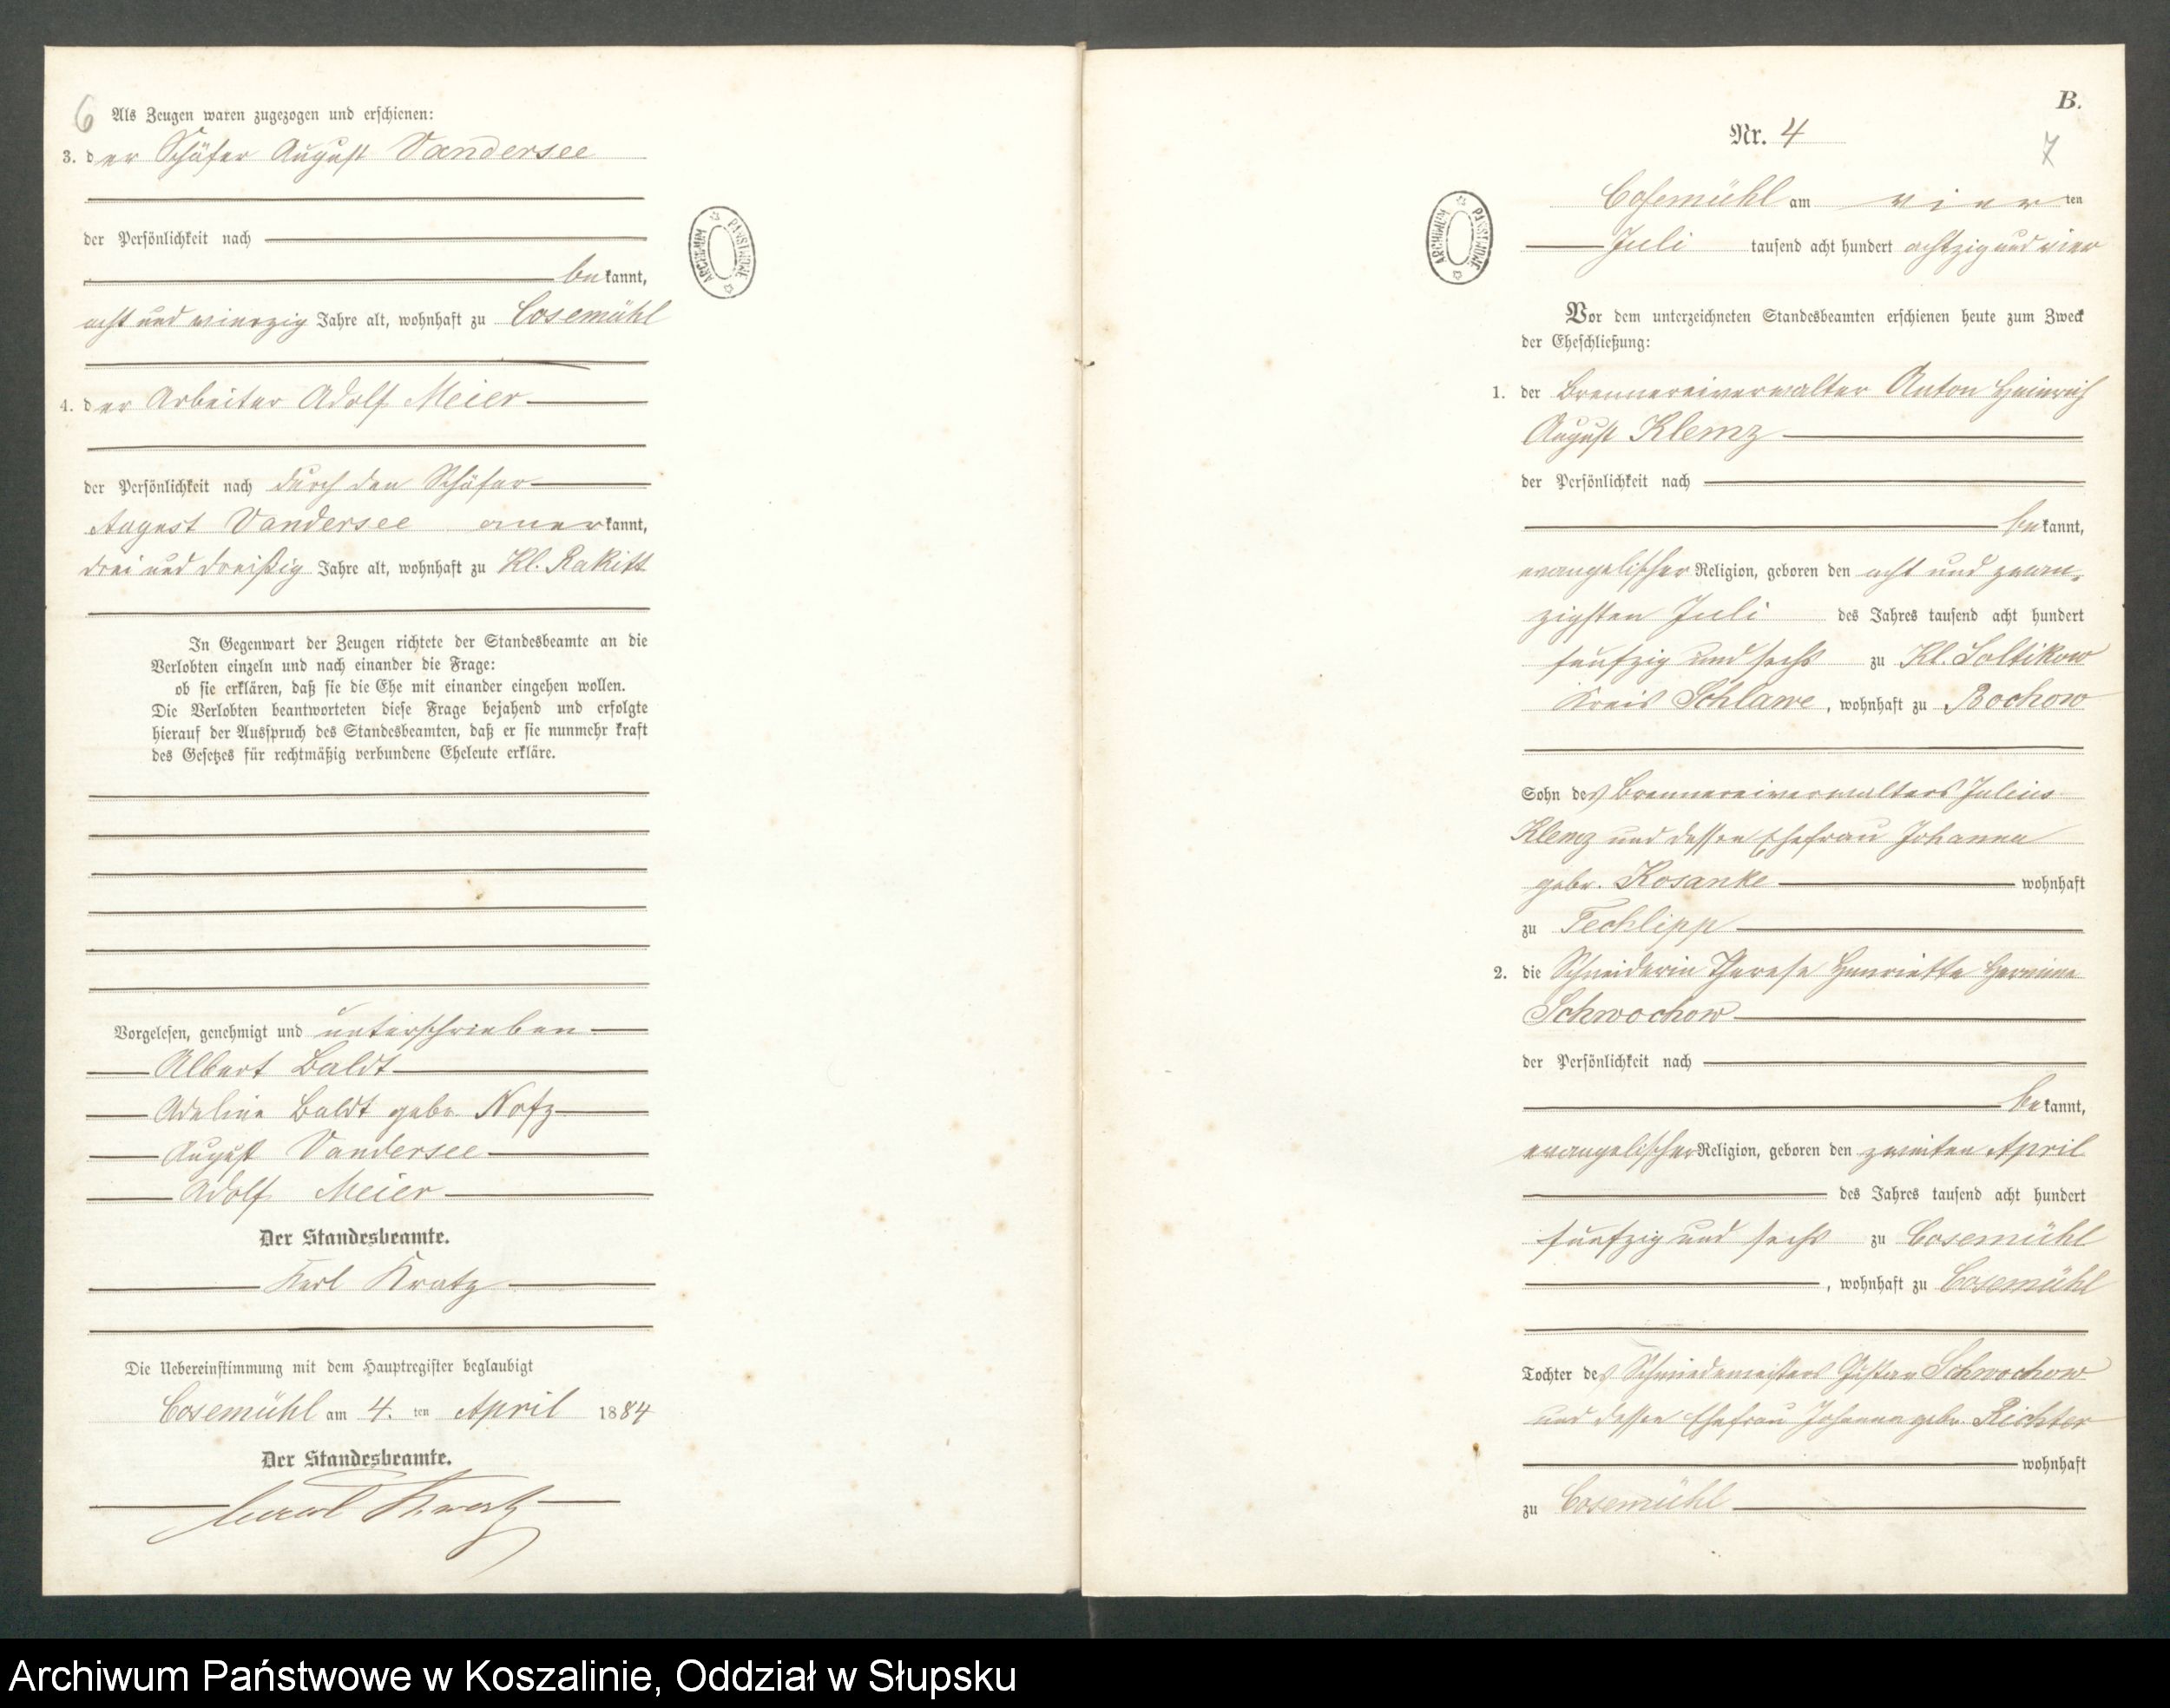 6
Als Zeugen waren zugezogen und erschienen:
3. der Schäfer August Vandersee
der Persönlichkeit nach
bekannt,
acht und vierzig Jahre alt, wohnhaft zu Cosemühl
4. der Arbeiter Adolf Meier
der Persönlichkeit nach durch den Schäfer
August Vandersee anerkannt,
drei und dreißig Jahre alt, wohnhaft zu Kl. Rakitt
In Gegenwart der Zeugen richtete der Standesbeamte an die
Verlobten einzeln und nach einander die Frage:
ob sie erklären, daß sie die Ehe mit einander eingehen wollen.
Die Verlobten beantworteten diese Frage bejahend und erfolgte
hierauf der Ausspruch des Standesbeamten, daß er sie nunmehr kraft
des Gesetzes für rechtmäßig verbundene Eheleute erkläre.
Vorgelesen, genehmigt und unterschrieben
Albert Baldt
Adeline Baldt gebr. Notz
August Vandersee
Adolf Meier
Der Standesbeamte.
Karl Kratz
Die Uebereinstimmung mit dem Hauptregister beglaubigt
Cosemühl am 4. ten April 1884
Der Standesbeamte.
Carl Kratz
ARCHIWUM PAŃSTWOWE
B.
Nr. 4
7
ARCHIWUM PAŃSTWOWE
Cosemühl am vierten
Juli tausend acht hundert achtzig und vier
Vor dem unterzeichneten Standesbeamten erschienen heute zum Zweck
der Eheschließung:
1. der Brennereiverwalter Anton Heinrich
August Klemz
der Persönlichkeit nach
bekannt,
evangelischer Religion, geboren den acht und zwan-
zigsten Juli des Jahres tausend acht hundert
fünfzig und sechs zu Kl. Soltikow
Kreis Schlawe, wohnhaft zu Bochow
Sohn des Brennereiverwalters Julius
Klemz und dessen Ehefrau Johanna
gebr. Kosanke wohnhaft
zu Techlipp
2. die Schneiderin Therese Henriette Hermine
Schwochow
der Persönlichkeit nach
bekannt,
evangelischer Religion, geboren den zweiten April
des Jahres tausend acht hundert
fünfzig und sechs zu Cosemühl
, wohnhaft zu Cosemühl
Tochter des Schmiedemeisters Gustav Schwochow
und dessen Ehefrau Johanna gebr. Richter
wohnhaft
zu Cosemühl
Archiwum Państwowe w Koszalinie, Oddział w Słupsku